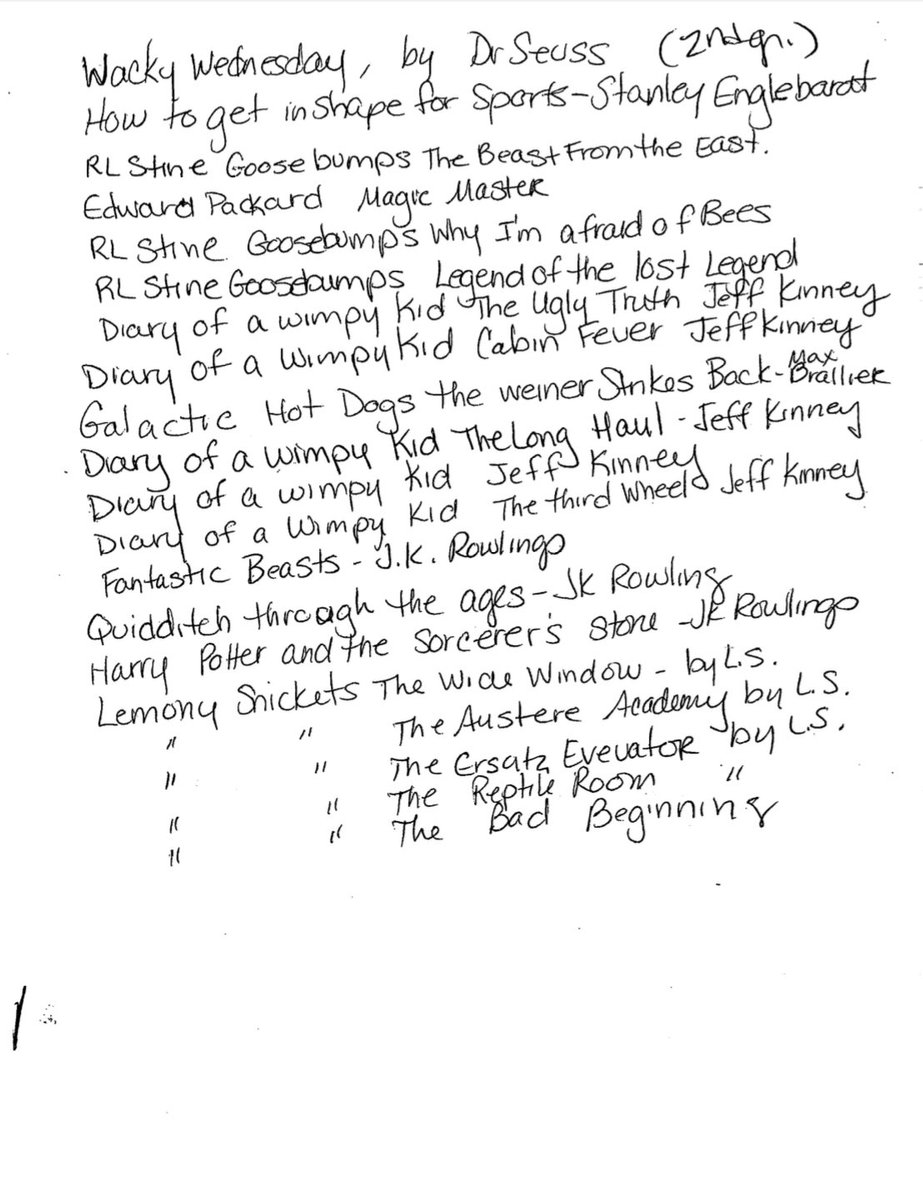 Wacky Wednesday, by Dr Seuss (2nd gr.)
How to get in shape for Sports - Stanley Englebardt
RL Stine Goosebumps The Beast From the East.
Edward Packard Magic Master
RL Stine Goosebumps Why I'm afraid of Bees
RL Stine Goosebumps Legend of the lost Legend
Diary of a wimpy Kid The Ugly Truth Jeff Kinney
Diary of a Wimpy Kid Cabin Fever Jeff Kinney
Galactic Hot Dogs the weiner Strikes Back - Max Brallier
Diary of a wimpy Kid The Long Haul - Jeff Kinney
Diary of a wimpy Kid Jeff Kinney
Diary of a Wimpy Kid The third Wheel Jeff Kinney
Fantastic Beasts - J.K. Rowling
Quidditch through the ages - JK Rowling
Harry Potter and the Sorcerer's Stone - JK Rowling
Lemony Snickets The Wide Window - by L.S.
" " The Austere Academy by L.S.
" " The Ersatz Evevator by L.S.
" " The Reptile Room "
" " The Bad Beginning